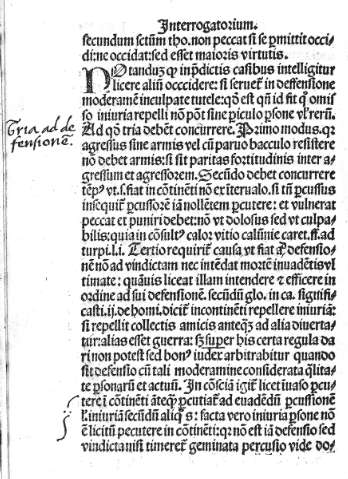 Interrogatorium.
secundum sctũm tho. non peccat si se pmittit occi
di: ne occidat: sed esset maioris virtutis.
NOtanduꝫ ꝙ in pdictis casibus intelligitur
licere aliũ occidere: si seruet᷑ in deffensione
moderamẽ inculpate tutele: qđ est qñ id fit qđ omis
so iniuria repelli nõ põt sine piculo psone vł rerũ.
Ad qđ tria debẽt concurrere. Primo modus. qꝛ
agressus sine armis vel cũ paruo bacculo resistere
nõ debet armis: si sit paritas fortitudinis inter a
gressum et agressorem. Secũdo debet concurrere
tẽpꝰ vt .s. fiat in cõtinẽti nõ ex iteruallo. si tñ pcussus
insequit᷑ pcussorẽ iã nollẽtem pcutere: et vulnerat
peccat et puniri debet: nõ vt dolosus sed vt culpa
bilis: quia in cõsultꝰ calor vitio calũnie caret. ff. ad
turpi. l. i. Tertio requirit᷑ causa vt fiat ad defensio
nẽ nõ ad vindictam nec intẽdat mortẽ inuadẽtis vl
timate: quãuis liceat illam intendere & efficere in
ordine ad sui defensionẽ. secũdũ glo. in ca. signifi
casti. ij. de homi. dicit᷑ incontinẽti repellere iniuriã:
si repellit collectis amicis anteqꝫ ad alia diuerta
tur: alias esset guerra: sꝫ super his certa regula da
ri non potest sed bonꝰ iudex arbitrabitur quando
sit defensio cũ tali moderamine considerata qlita
te psonarũ et actuũ. In cõscia igit᷑ licet iuaso pcu
tere ĩ cõtinẽti ãteqꝫ pcutiat᷑ ad euadẽdũ pcussionẽ
ł iniuriã secũdũ aliqs: facta vero iniuria psone nõ
ẽ licitũ pecutere in cõtinẽti: qꝛ nõ est iã defensio sed
vindicta nisi timeret᷑ geminata percusio vide do-
Tria ad de
fensionẽ.